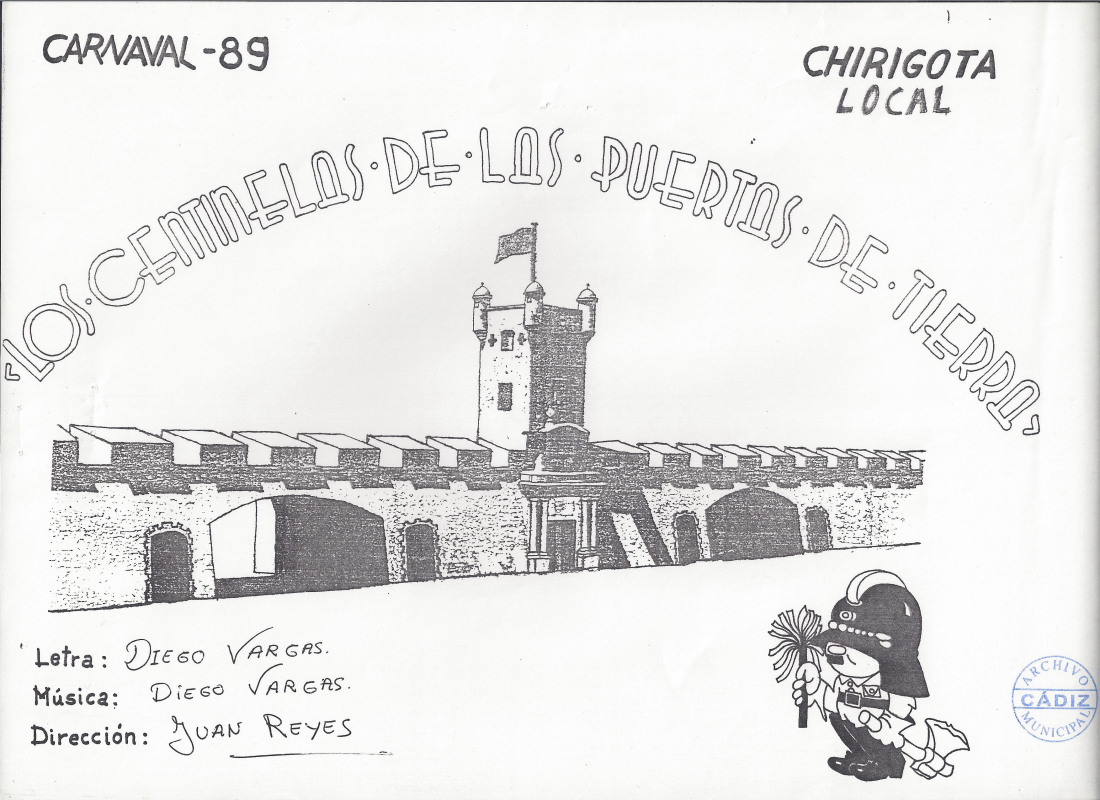 CARNAVAL-89
CHIRIGOTA
LOCAL
"LOS·CENTINELAS·DE·LAS·PUERTAS·DE·TIERRA"
Letra: DIEGO VARGAS.
Música: DIEGO VARGAS.
Dirección: JUAN REYES
ARCHIVO
CÁDIZ
MUNICIPAL